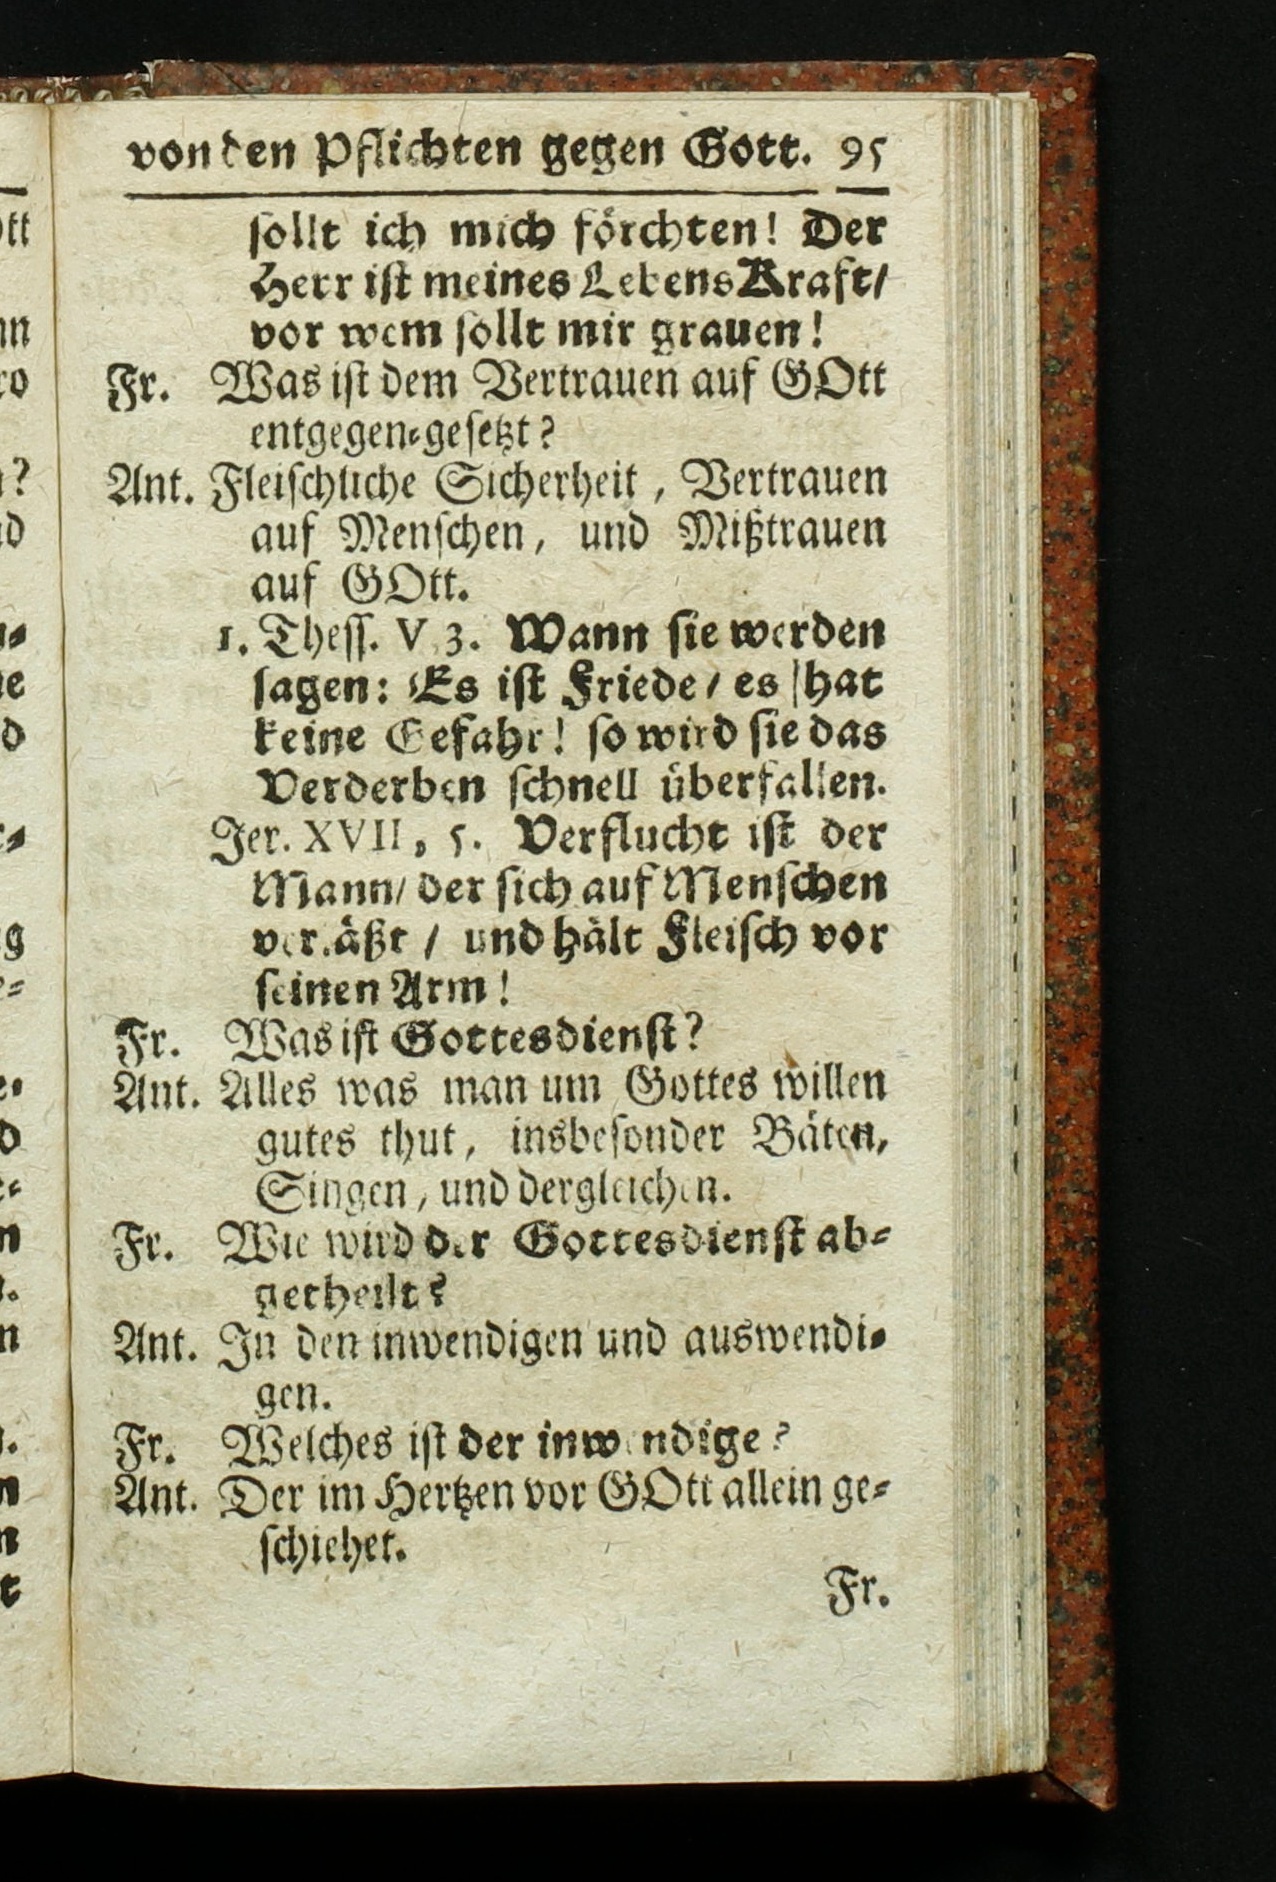 von den Pflichten gegen Gott. 95
sollt ich mich förchten! Der
Herr ist meines Lebens Kraft/
vor wem sollt mir grauen!
Fr. Was ist dem Vertrauen auf GOtt
entgegen-gesetzt?
Ant. Fleischliche Sicherheit, Vertrauen
auf Menschen, und Mißtrauen
auf GOtt.
1. Thess. V, 3. Wann sie werden
sagen: Es ist Friede/ es hat
keine Gefahr! so wird sie das
Verderben schnell überfallen.
Jer. XVII, 5. Verflucht ist der
Mann/ der sich auf Menschen
verläßt / und hält Fleisch vor
seinen Arm!
Fr. Was ist Gottesdienst?
Ant. Alles was man um Gottes willen
gutes thut, insbesonder Bäten,
Singen, und dergleichen.
Fr. Wie wird der Gottesdienst ab-
getheilt?
Ant. In den inwendigen und auswendi-
gen.
Fr. Welches ist der inwendige?
Ant. Der im Hertzen vor GOtt allein ge-
schiehet.
Fr.